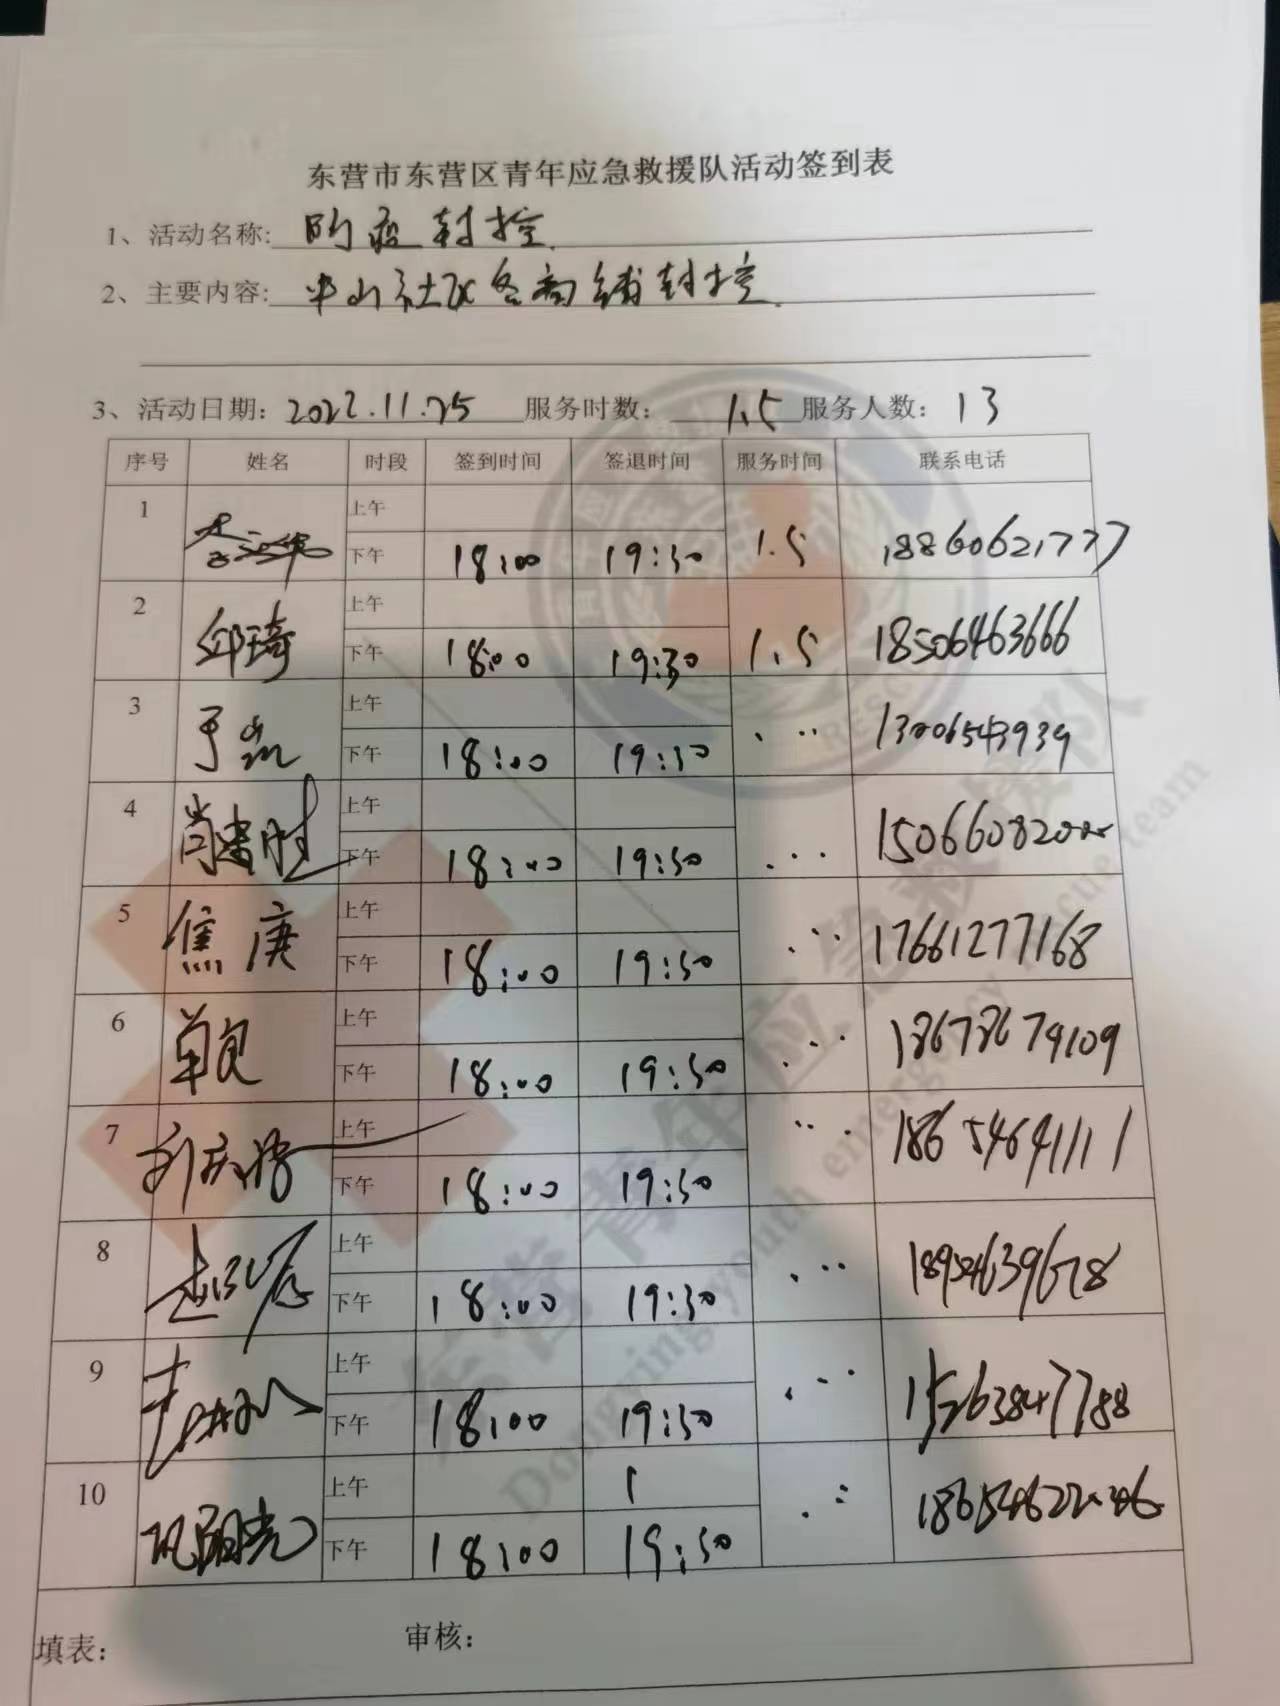 东营市东营区青年应急救援队活动签到表
1、活动名称: 防疫封控
2、主要内容: 半山社区各商铺封控
3、活动日期: 2022.11.25 服务时数: 1.5 服务人数: 13
序号 姓名 时段 签到时间 签退时间 服务时间 联系电话
1 上午
下午 18:00 19:30 1.5 18860621777
2 邱琦 上午
下午 18:00 19:30 1.5 18506463666
3 于凯 上午
下午 18:00 19:30
4 上午
下午 18:00 19:30
5 焦庚 上午
下午 18:00 19:30 17661277168
6 单良 上午
下午 18:00 19:30 18678674109
7 上午
下午 18:00 19:30 18654641111
8 上午
下午 18:00 19:30
9 上午
下午 18:00 19:30 15263847788
10 上午
下午 18:00 19:30
填表: 审核:
东营青年应急救援队
Dongying youth emergency rescue team